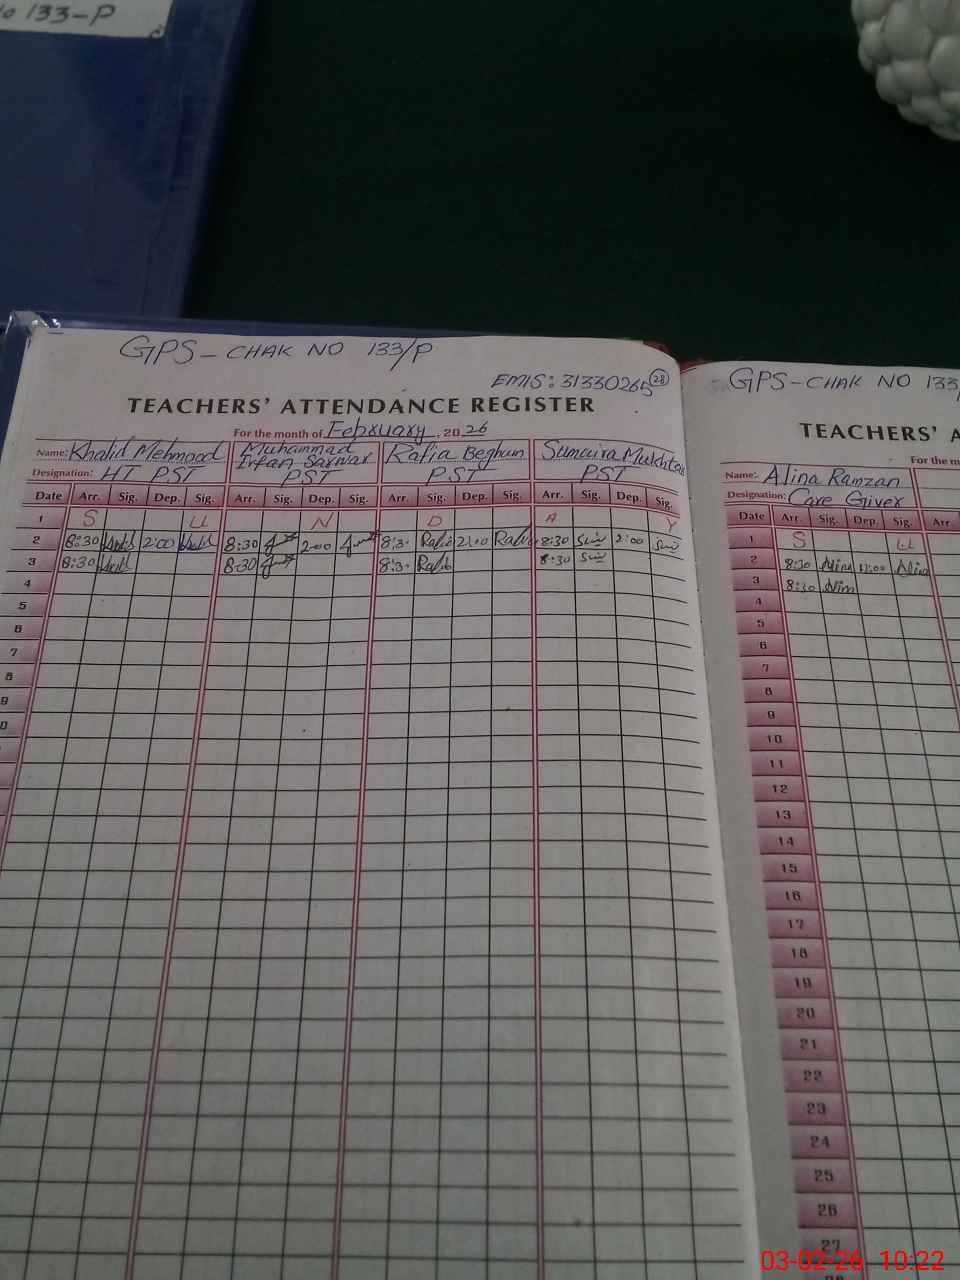 No 133-P
GPS - CHAK NO 133/P
EMIS: 31330265 28
TEACHERS' ATTENDANCE REGISTER
For the month of February, 2026
Name: Khalid Mehmood Muhammad Irfan Sarwar Rafia Beghum Sumaira Mukhtar
Designation: HT PST PST PST PST
Date Arr. Sig. Dep. Sig. Arr. Sig. Dep. Sig. Arr. Sig. Dep. Sig. Arr. Sig. Dep. Sig.
1 S U N D A Y
2 8:30 2:00 8:30 2:00 8:3- Rafia 2:00 Rafia 8:30 2:00
3 8:30 8:30 8:3- Rafia 8:30
4
5
6
7
8
9
0
GPS - CHAK NO 133
TEACHERS' A
For the m
Name: Alina Ramzan
Designation: Care Giver
Date Arr. Sig. Dep. Sig. Arr.
1 S U
2 8:30 Alina 12:00 Alina
3 8:30 Alina
4
5
6
7
8
9
10
11
12
13
14
15
16
17
18
19
20
21
22
23
24
25
26
27
03-02-26 10:22